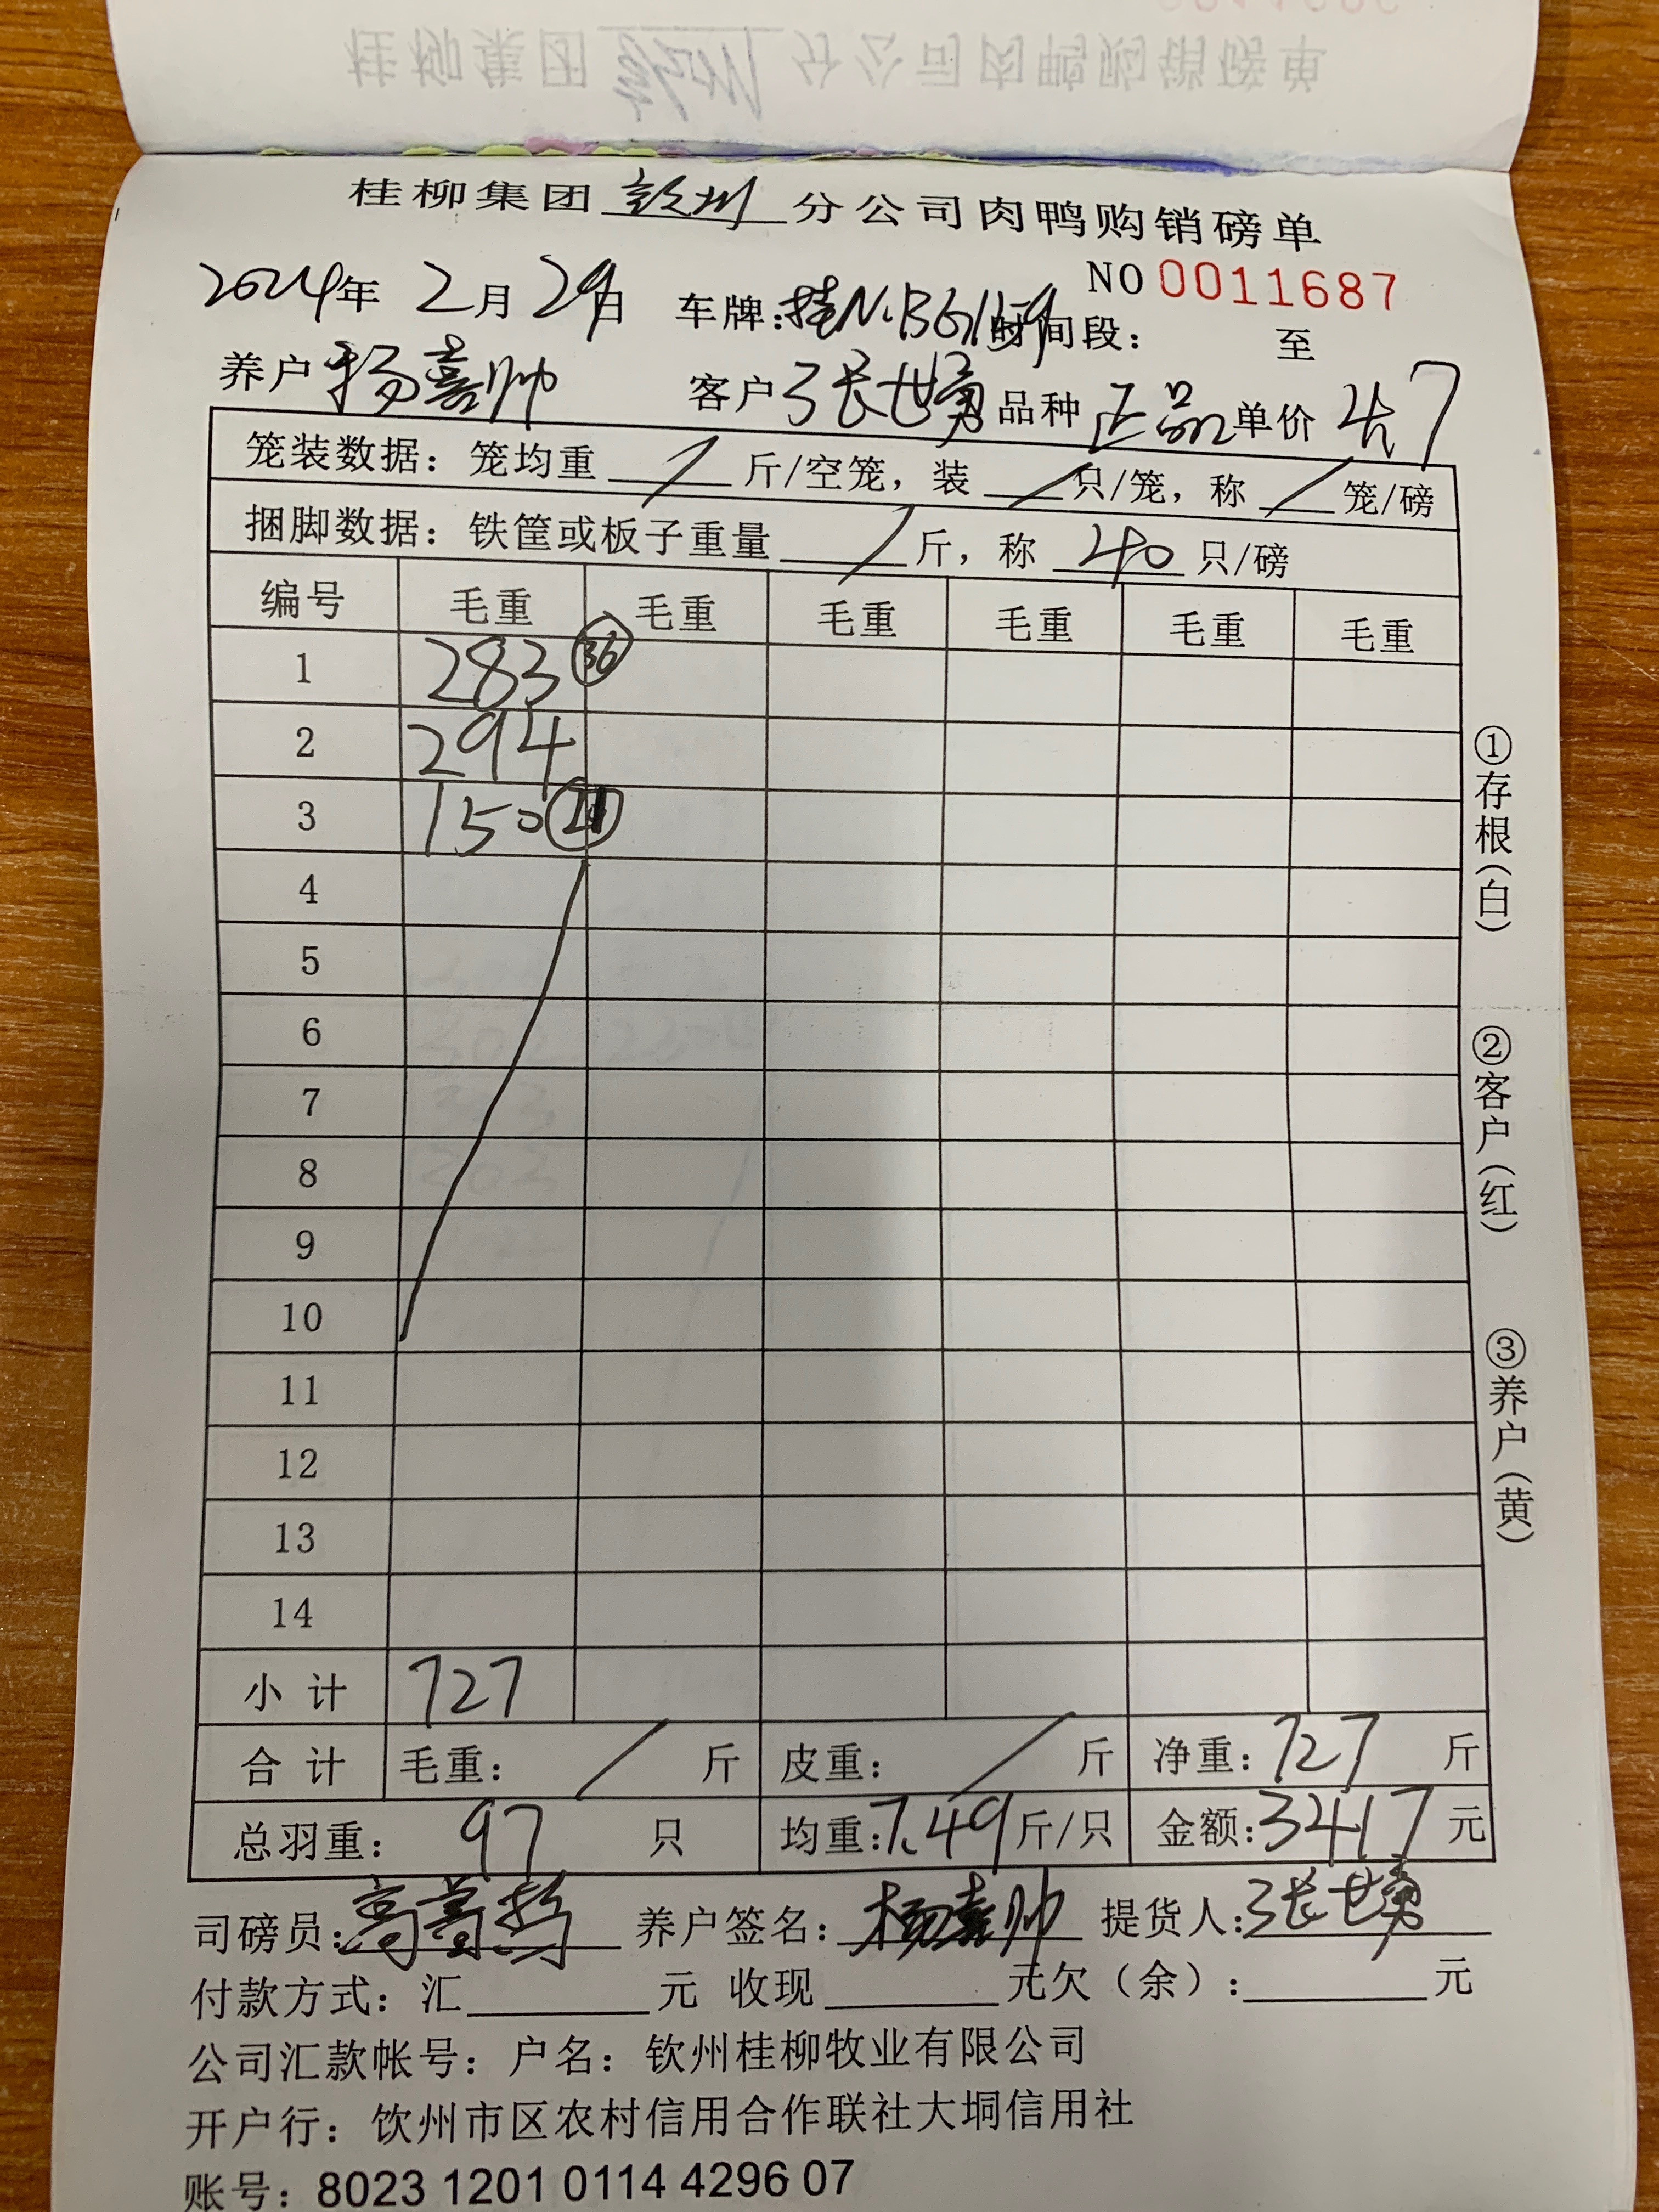 桂柳集团钦州分公司肉鸭购销磅单
NO 0011687
2024年 2月 29日 车牌:桂N·B6J159 时间段: 至
养户 杨嘉帅 客户 张世勇 品种 正品 单价 4.7
笼装数据: 笼均重 / 斤/空笼, 装 / 只/笼, 称 / 笼/磅
捆脚数据: 铁筐或板子重量 / 斤, 称 40 只/磅
编号 毛重 毛重 毛重 毛重 毛重 毛重
1 283 36
2 294
3 150 21
4
5
6
7
8
9
10
11
12
13
14
小计 727
合计 毛重: / 斤 皮重: / 斤 净重: 727 斤
总羽重: 97 只 均重: 7.49 斤/只 金额: 3417 元
司磅员: 养户签名: 杨嘉帅 提货人: 张世勇
付款方式: 汇 元 收现 元欠(余): 元
公司汇款帐号: 户名: 钦州桂柳牧业有限公司
开户行: 钦州市区农村信用合作联社大垌信用社
账号: 8023 1201 0114 4296 07
①存根(白)
②客户(红)
③养户(黄)